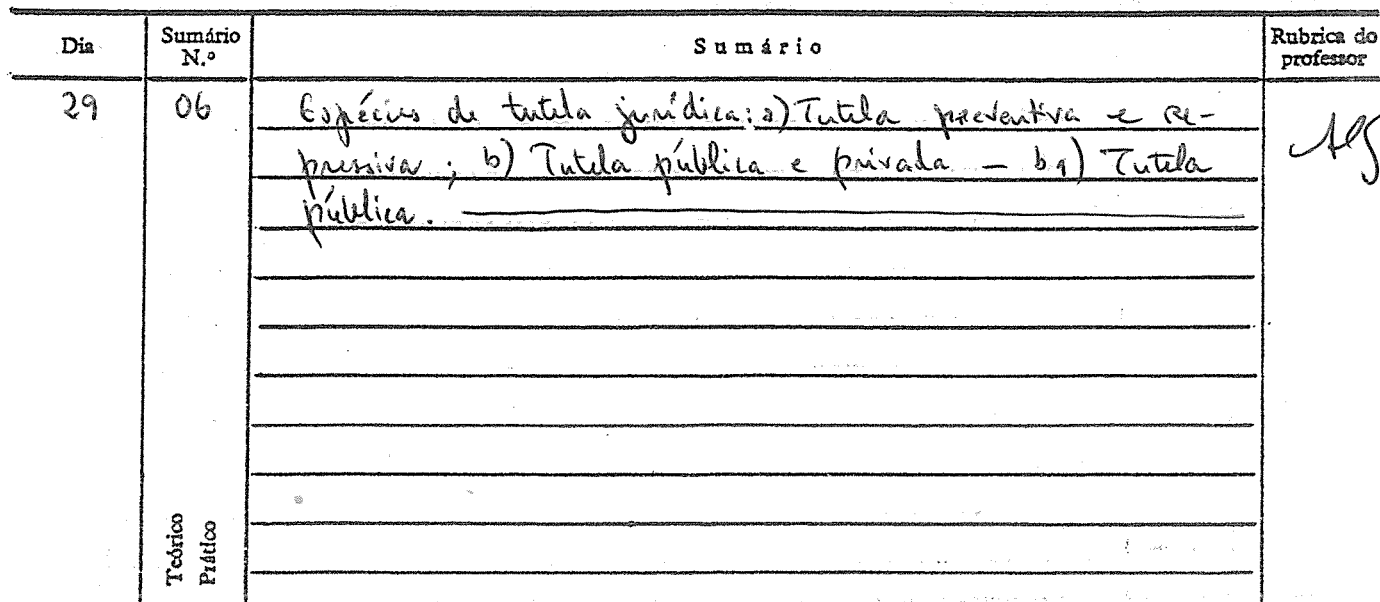 Dia
Sumário
N.º
Sumário
Rubrica do
professor
29
06
Espécies de tutela jurídica: a) Tutela preventiva e re-
pressiva; b) Tutela pública e privada - b1) Tutela
pública.
Teórico
Prático